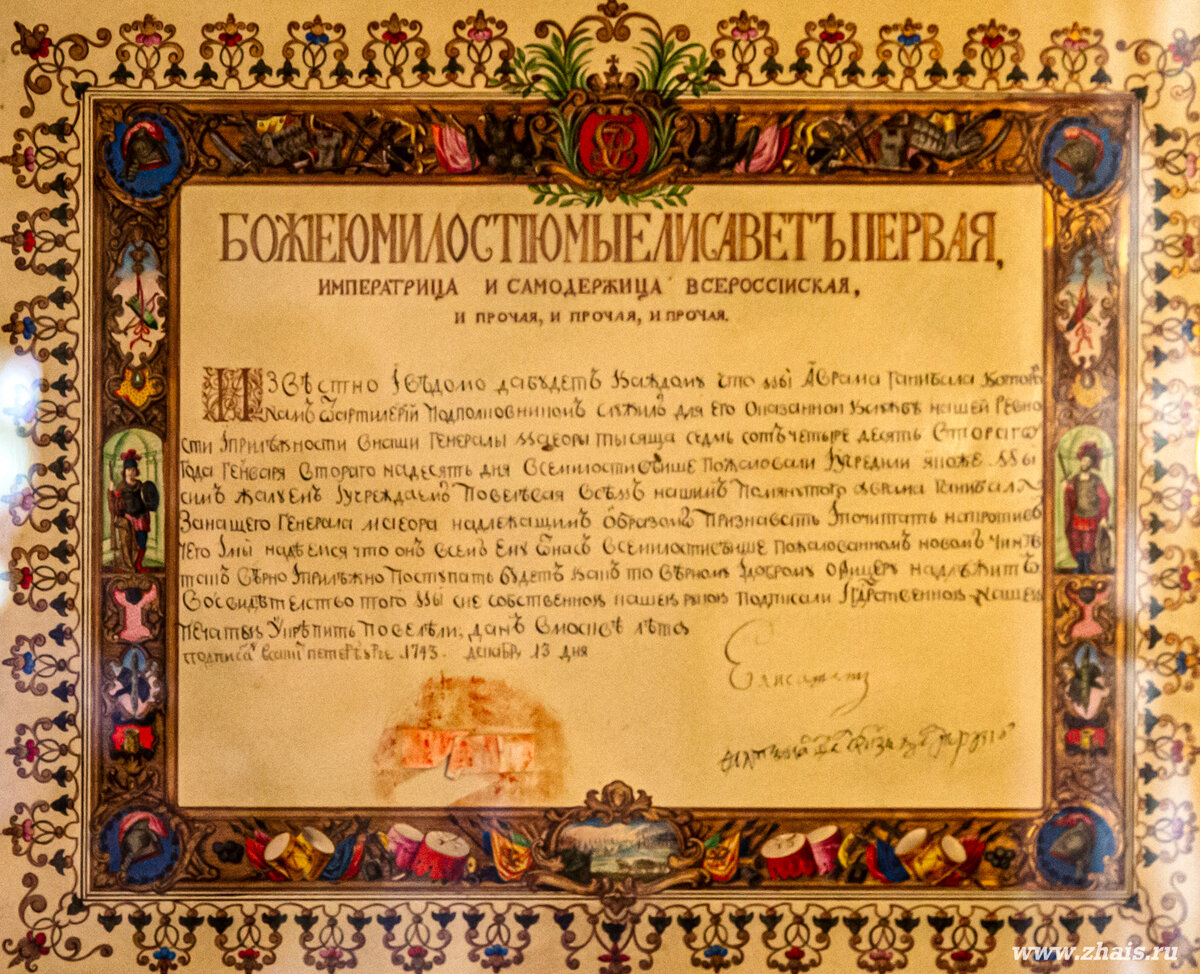 БОЖІЕЮ МИЛОСТІЮ МЫ ЕЛИСАВЕТЪ ПЕРВАЯ,
ИМПЕРАТРИЦА И САМОДЕРЖИЦА ВСЕРОССІЙСКАЯ,
И ПРОЧАЯ, И ПРОЧАЯ, И ПРОЧАЯ.
ИЗВѢСТНО IВѢДОМО ДАБУДЕТЪ КАЖДОМУ ЧТО МЫ АВРАМА ГАНИБАЛА КОТОРЫ
НАМЪ ПОДПОЛКОВНИКОМЪ СЛУЖИЛЪ ДЛЯ ЕГО ОКАЗАННОЙ НАШЕЙ РЕВНО
СТИ IПРИЛѢЖНОСТИ ВНАШИ ГЕНЕРАЛЫ МАЕОРЫ ТЫСЯЩА СЕДМЬ СОТЪ ЧЕТЫРЕ ДЕСЯТЬ ВТОРАГО
ГОДА ГЕНВАРЯ ВТОРАГО НАДЕСЯТЬ ДНЯ ВСЕМИЛОСТИВѢЙШЕ ПОЖАЛОВАЛИ IУЧРЕДИЛИ ЯКОЖЕ МЫ
СИМЪ ЖАЛУЕМЪ IУЧРЕЖДАЕМЪ ПОВЕЛѢВАЯ ВСѢМЪ НАШИМЪ ПОМЯНУТОГО АВРАМА ГАНИБАЛА
ЗАНАШЕГО ГЕНЕРАЛА МАЕОРА НАДЛЕЖАЩИМЪ ОБРАЗОМЪ ПРИЗНАВАТЬ IПОЧИТАТЬ НАПРОТИВЪ
ЧЕГО IМЫ НАДѢЕМСЯ ЧТО ОНЪ ВСЕМЪ ЕМУ ѾНАСЪ ВСЕМИЛОСТИВѢЙШЕ ПОЖАЛОВАННОМЪ НОВОМЪ ЧИНѢ
ТАКЪ ВѢРНО IПРИЛѢЖНО ПОСТУПАТЬ БУДЕТЪ КАКЪ ТО ВѢРНОМУ IДОБРОМУ ОФИЦЕРУ НАДЛѢЖИТЪ
ВОСВИДѢТЕЛСТВО ТОГО МЫ СИЕ СОБСТВЕННОЮ НАШЕЮ РУКОЮ ПОДПИСАЛИ IГДРСТВЕННОЮ НАШЕЮ
ПЕЧАТЬЮ УКРѢПИТЬ ПОВЕЛѢЛИ, ДАНЪ ВМОСКВѢ ЛѢТА
1743. ДЕКАБР, 13 ДНЯ
Елисаветъ
www.zhais.ru